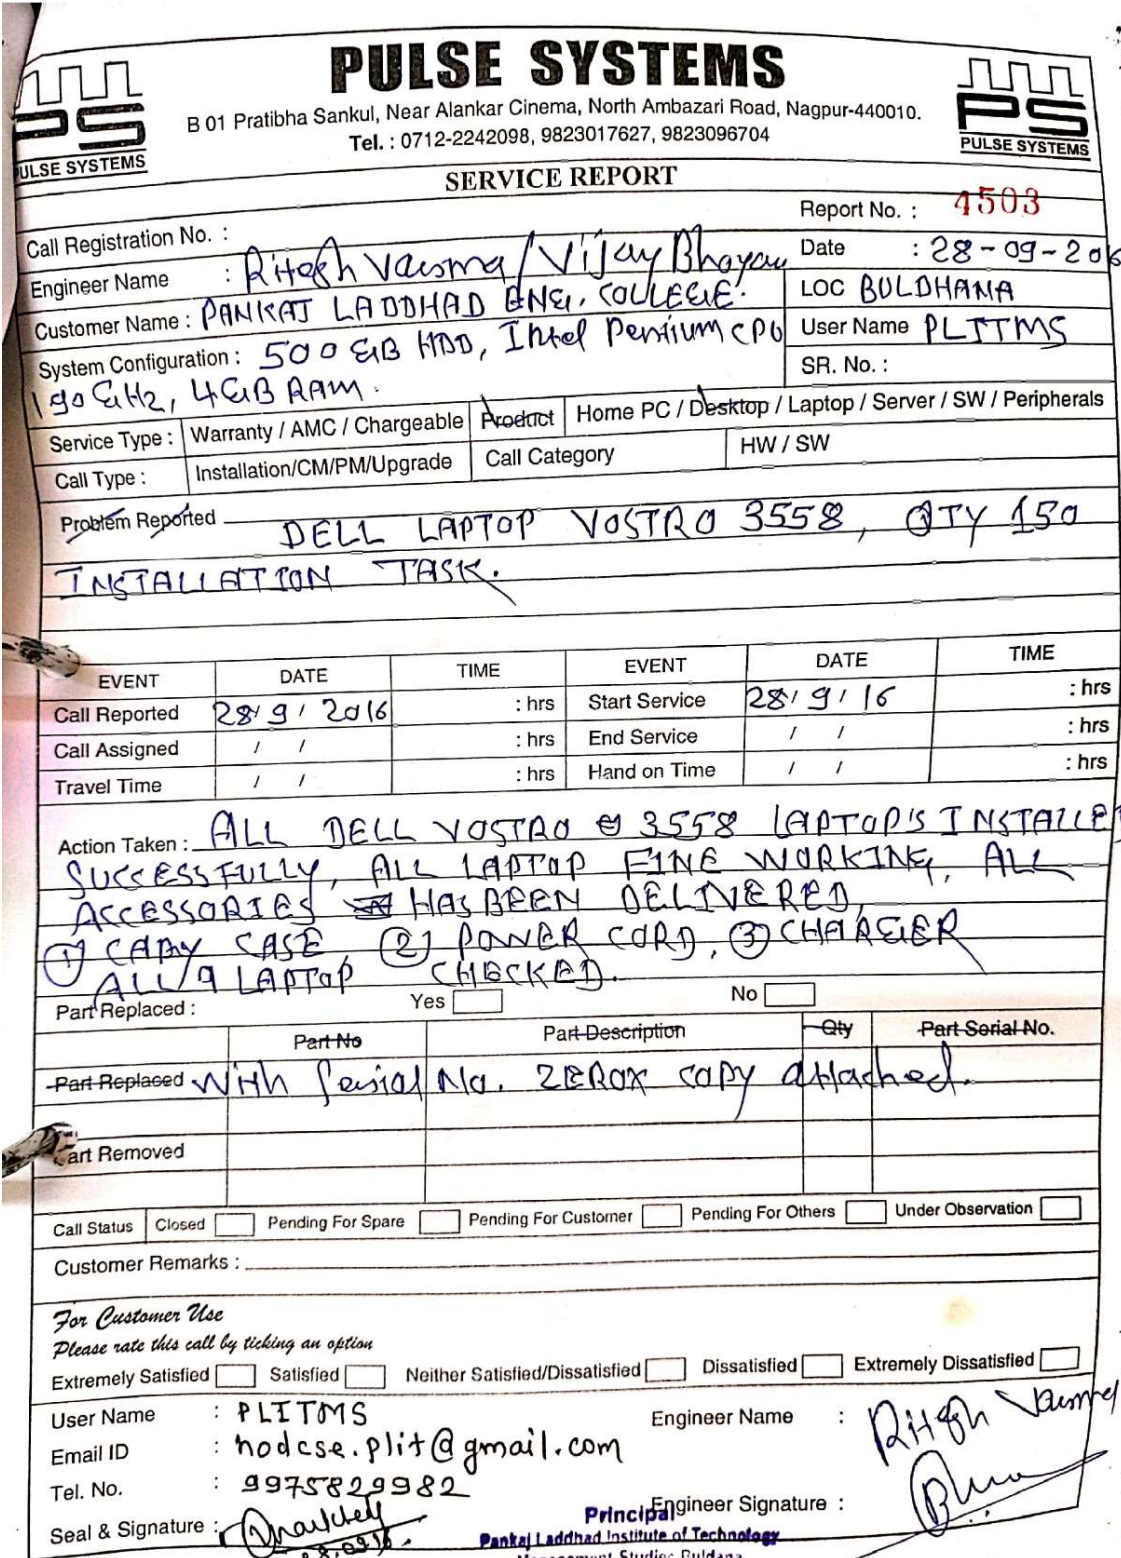 PULSE SYSTEMS
B 01 Pratibha Sankul, Near Alankar Cinema, North Ambazari Road, Nagpur-440010.
Tel. : 0712-2242098, 9823017627, 9823096704
PS
PULSE SYSTEMS
PS
PULSE SYSTEMS
SERVICE REPORT
Report No. : 4503
Call Registration No. :
Date : 28-09-2016
Engineer Name : Ritesh Varma / Vijay Bhoyar
LOC BULDHANA
Customer Name : PANKAJ LADDHAD ENG. COLLEGE.
User Name PLITMS
System Configuration : 500 GB HDD, Intel Pentium CPU
SR. No. :
1.90 GHz, 4 GB RAM.
Service Type : Warranty / AMC / Chargeable Product Home PC / Desktop / Laptop / Server / SW / Peripherals
Call Type : Installation/CM/PM/Upgrade Call Category HW / SW
Problem Reported DELL LAPTOP VOSTRO 3558, QTY 150
INSTALLATION TASK.
EVENT DATE TIME EVENT DATE TIME
Call Reported 28/9/2016 : hrs Start Service 28/9/16 : hrs
Call Assigned / / : hrs End Service / / : hrs
Travel Time / / : hrs Hand on Time / / : hrs
Action Taken : ALL DELL VOSTRO 3558 LAPTOP'S INSTALLED
SUCCESSFULLY, ALL LAPTOP FINE WORKING, ALL
ACCESSORIES HAS BEEN DELIVERED,
① CARRY CASE, ② POWER CORD, ③ CHARGER
ALL LAPTOP CHECKED.
Part Replaced : Yes No
Part No Part Description Qty Part Serial No.
Part Replaced With Serial No. ZEROX copy attached.
Part Removed
Call Status Closed Pending For Spare Pending For Customer Pending For Others Under Observation
Customer Remarks :
For Customer Use
Please rate this call by ticking an option
Extremely Satisfied Satisfied Neither Satisfied/Dissatisfied Dissatisfied Extremely Dissatisfied
User Name : PLITMS
Engineer Name : Ritesh Varma
Email ID : hodcse.plit@gmail.com
Tel. No. : 9975829982
Engineer Signature :
Seal & Signature :
Principal
Pankaj Laddhad Institute of Technology
Management Studies Buldana